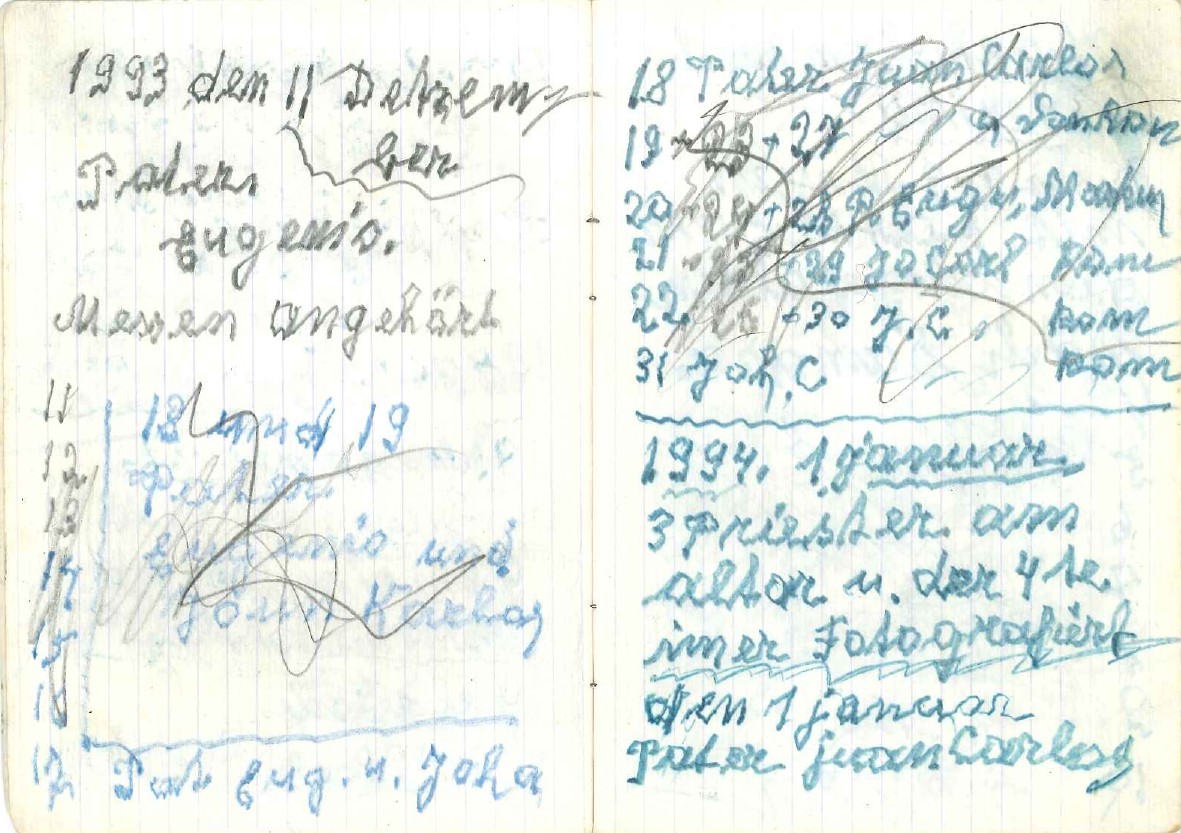 1993 den 11 Dehzem
ber
Pater
Eugenio.
Messen angehört
11
12
13
14
15
18 und 19
Pater
Eugenio und
17 Pat Eug. u. Joha
18 Pater Juan Carlos
19 + 23 + 27
20 + 24 + 28 P. Eugu,
21 + 29 Jo Carl Rom
22 + 30 J. C. Rom
31 Joh, C. Rom
1994. 1 januar
3 Priester am
altar u. der 4 te.
imer Fotografiert
den 1 januar
Pater juan Carlos